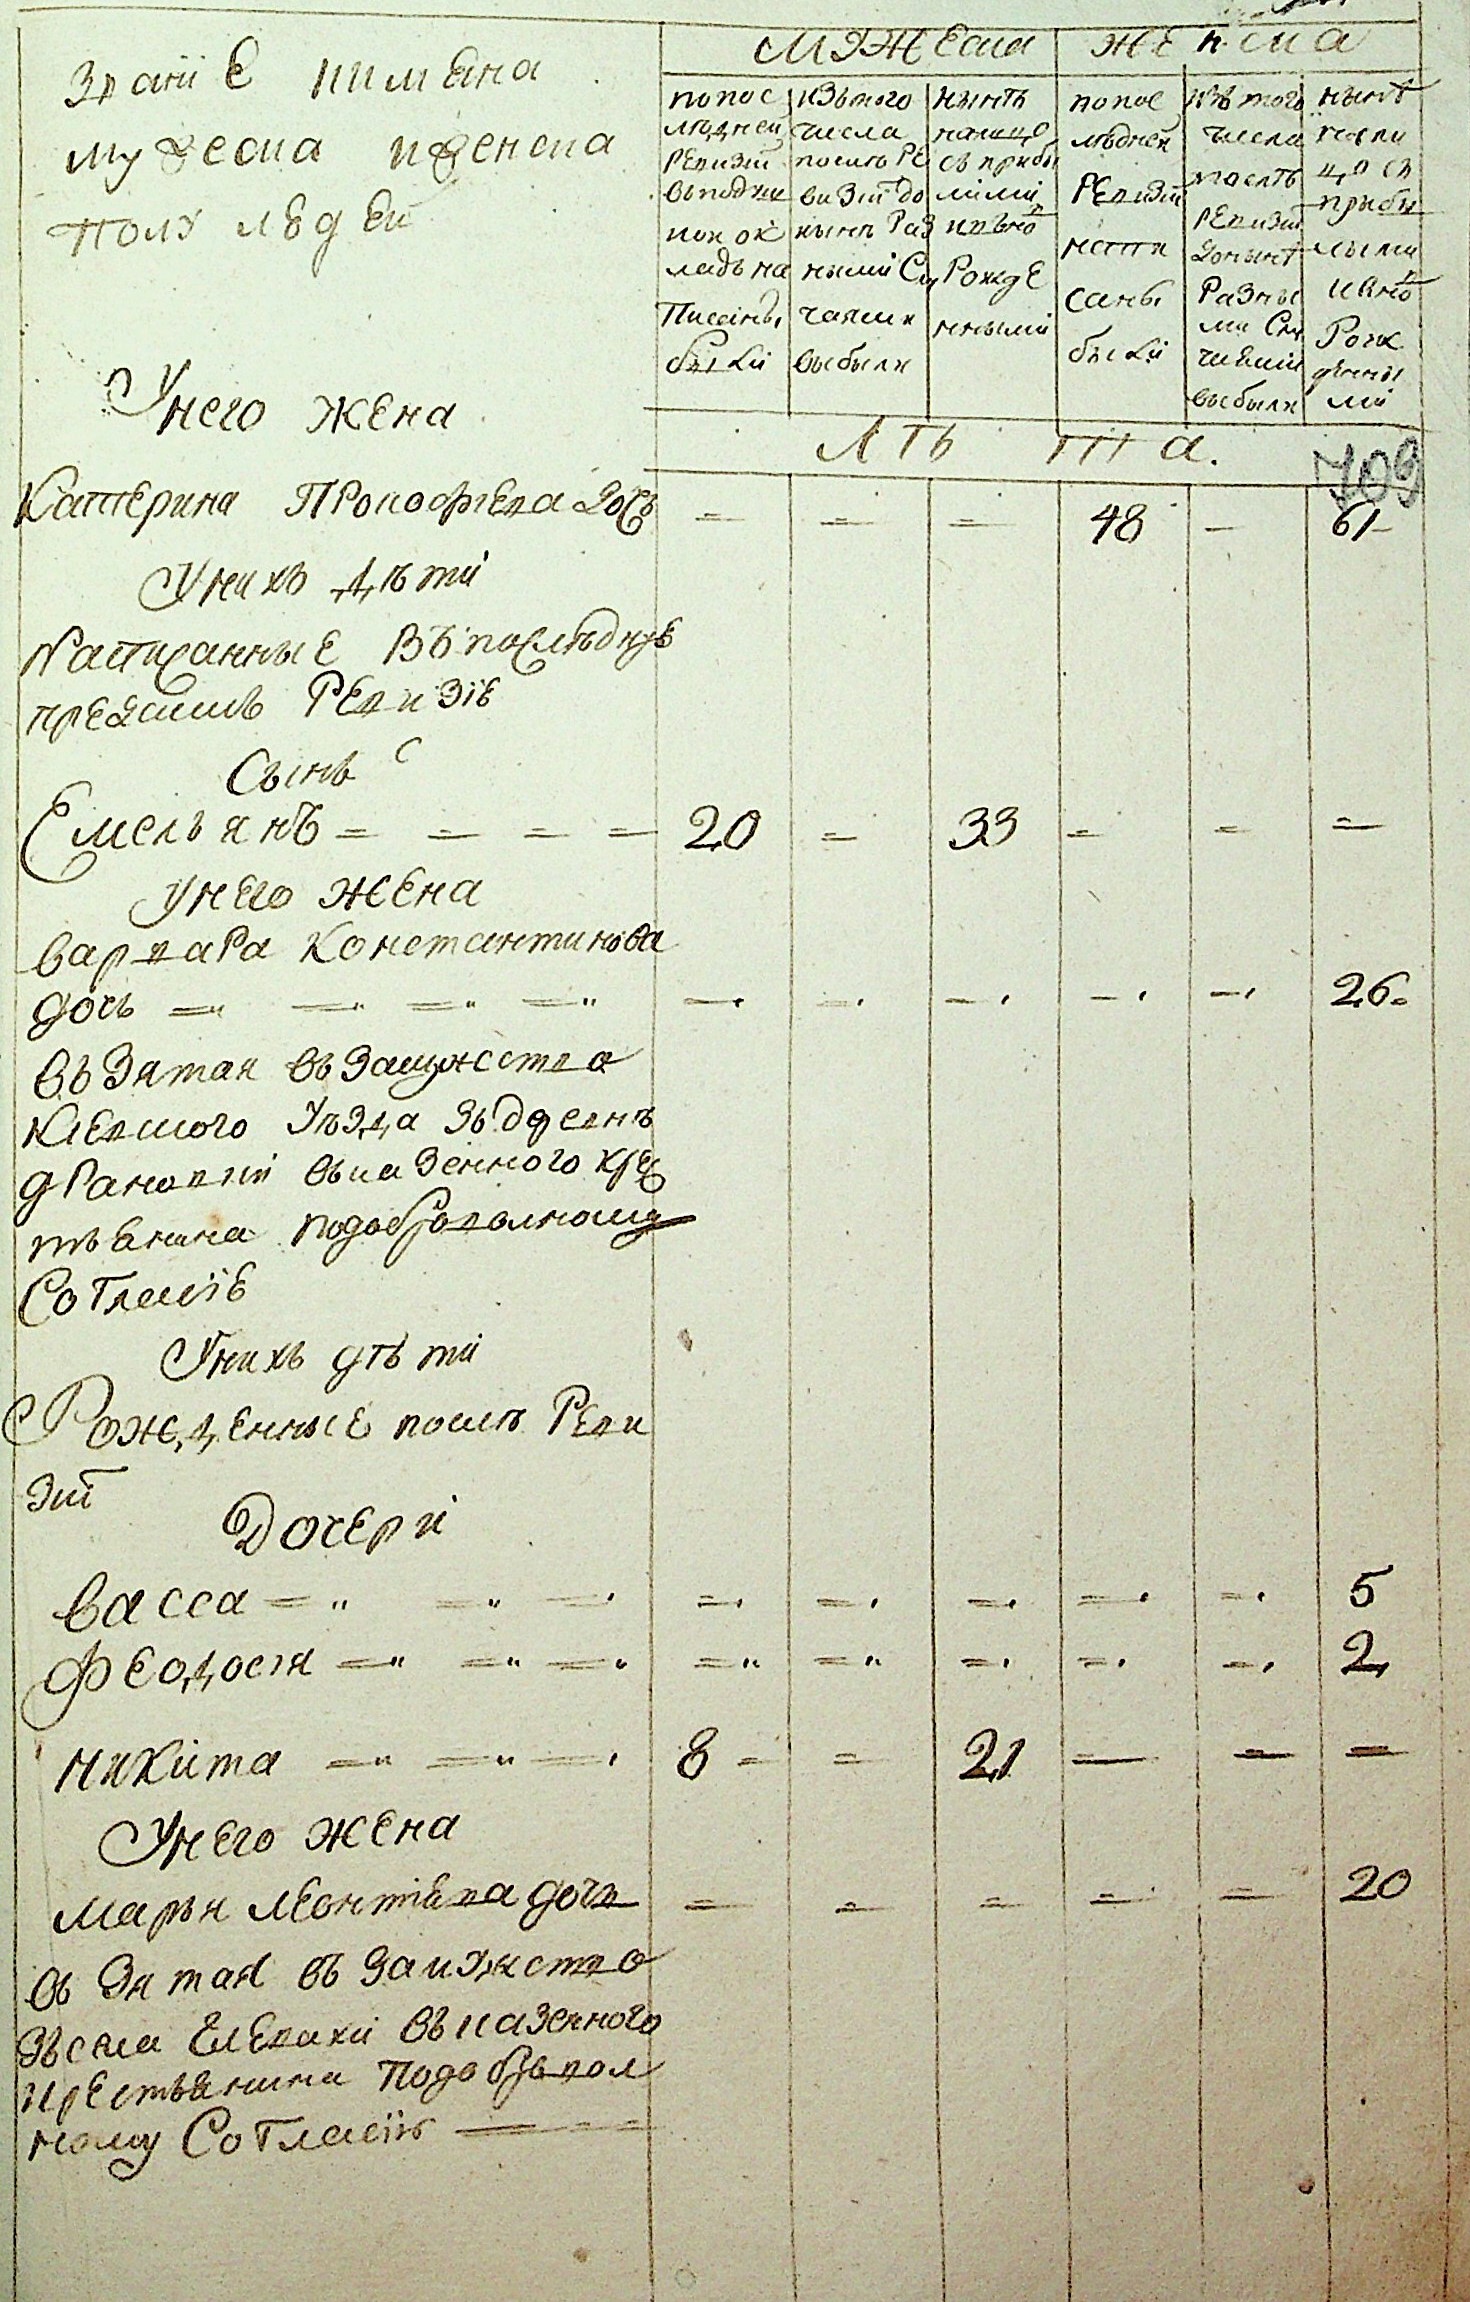 Званiе имена
мужеска иженска
полу людей
Мужеска
Женска
попос
лѣдней
Ревизiи
вподуш
ной ок
ладъ на
Писанъ,
были
изътого
числа
послѣ Ре
визiи до
нынѣ Раз
ными Слу
чаями
выбыли
нынѣ
налицо
съ прибы
лими
ивьно
Рожде
нными
попос
лѣдней
Ревизiи
напи
саны
были
изъ того
числа
послѣ
Ревизiи
донынѣ
Разны
ми Слу
чаями
выбыли
нынѣ
нали
цо съ
прибы
лыми
ивно
Рож
денны
ми
Лѣта.
709
Унего жена
Катерина Прокофьева дочь = = = 48 - 61-
Унихъ дѣти
Написанные Въ последнуе
предшив Ревизiе
Сынъ
Емельянъ = = = = 20 = 33 = = =
унего жена
варвара Константинова
дочь = = = = = = = = = 26=
въ Зятая въ Замужство
Киевского Уѣзда Зъ деревнѣ
въ казенного крес
тьянина подобровольному
Согласiе
Унихъ дѣти
Рожденные послѣ Реви
зiи
Дочери
васса = = = = = = = = 5
Феодосiя = = = = = = = = 2
никита = = = 8 = = 21 = = =
Унего жена
марья леонтiева дочь = = = = = 20
въ Зятая въ Замужство
Зъ села въ казенного
крестьянина Подобровол
ному Согласiю